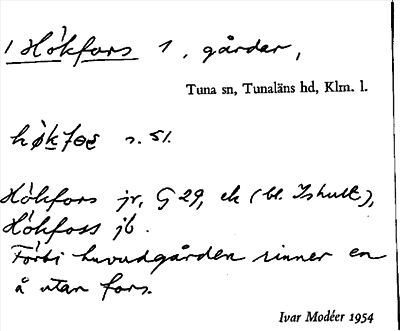 1 Hökfors 1, gårdar,
Tuna sn, Tunaläns hd, Klm. l.
s. 51.
Hökfors jr, G 29, ek (bl. Ishult),
Hökfoss jb.
Förbi huvudgården rinner en
å utan fors.
Ivar Modéer 1954